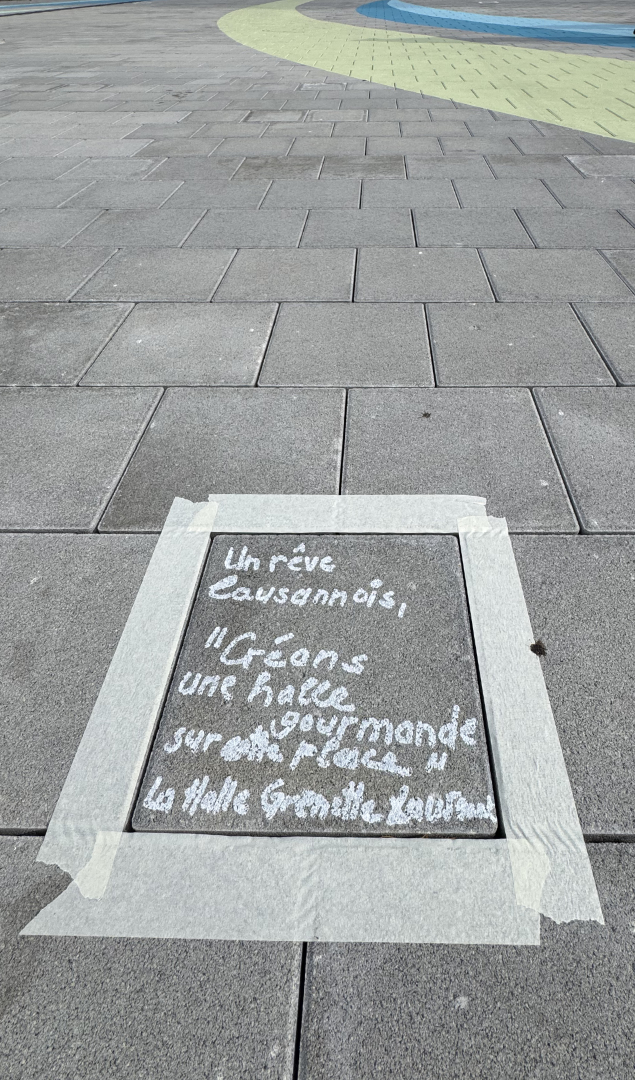 Un rêve
Lausannois,
"Créons
une halle
gourmande
sur cette place"
La Halle Grenette